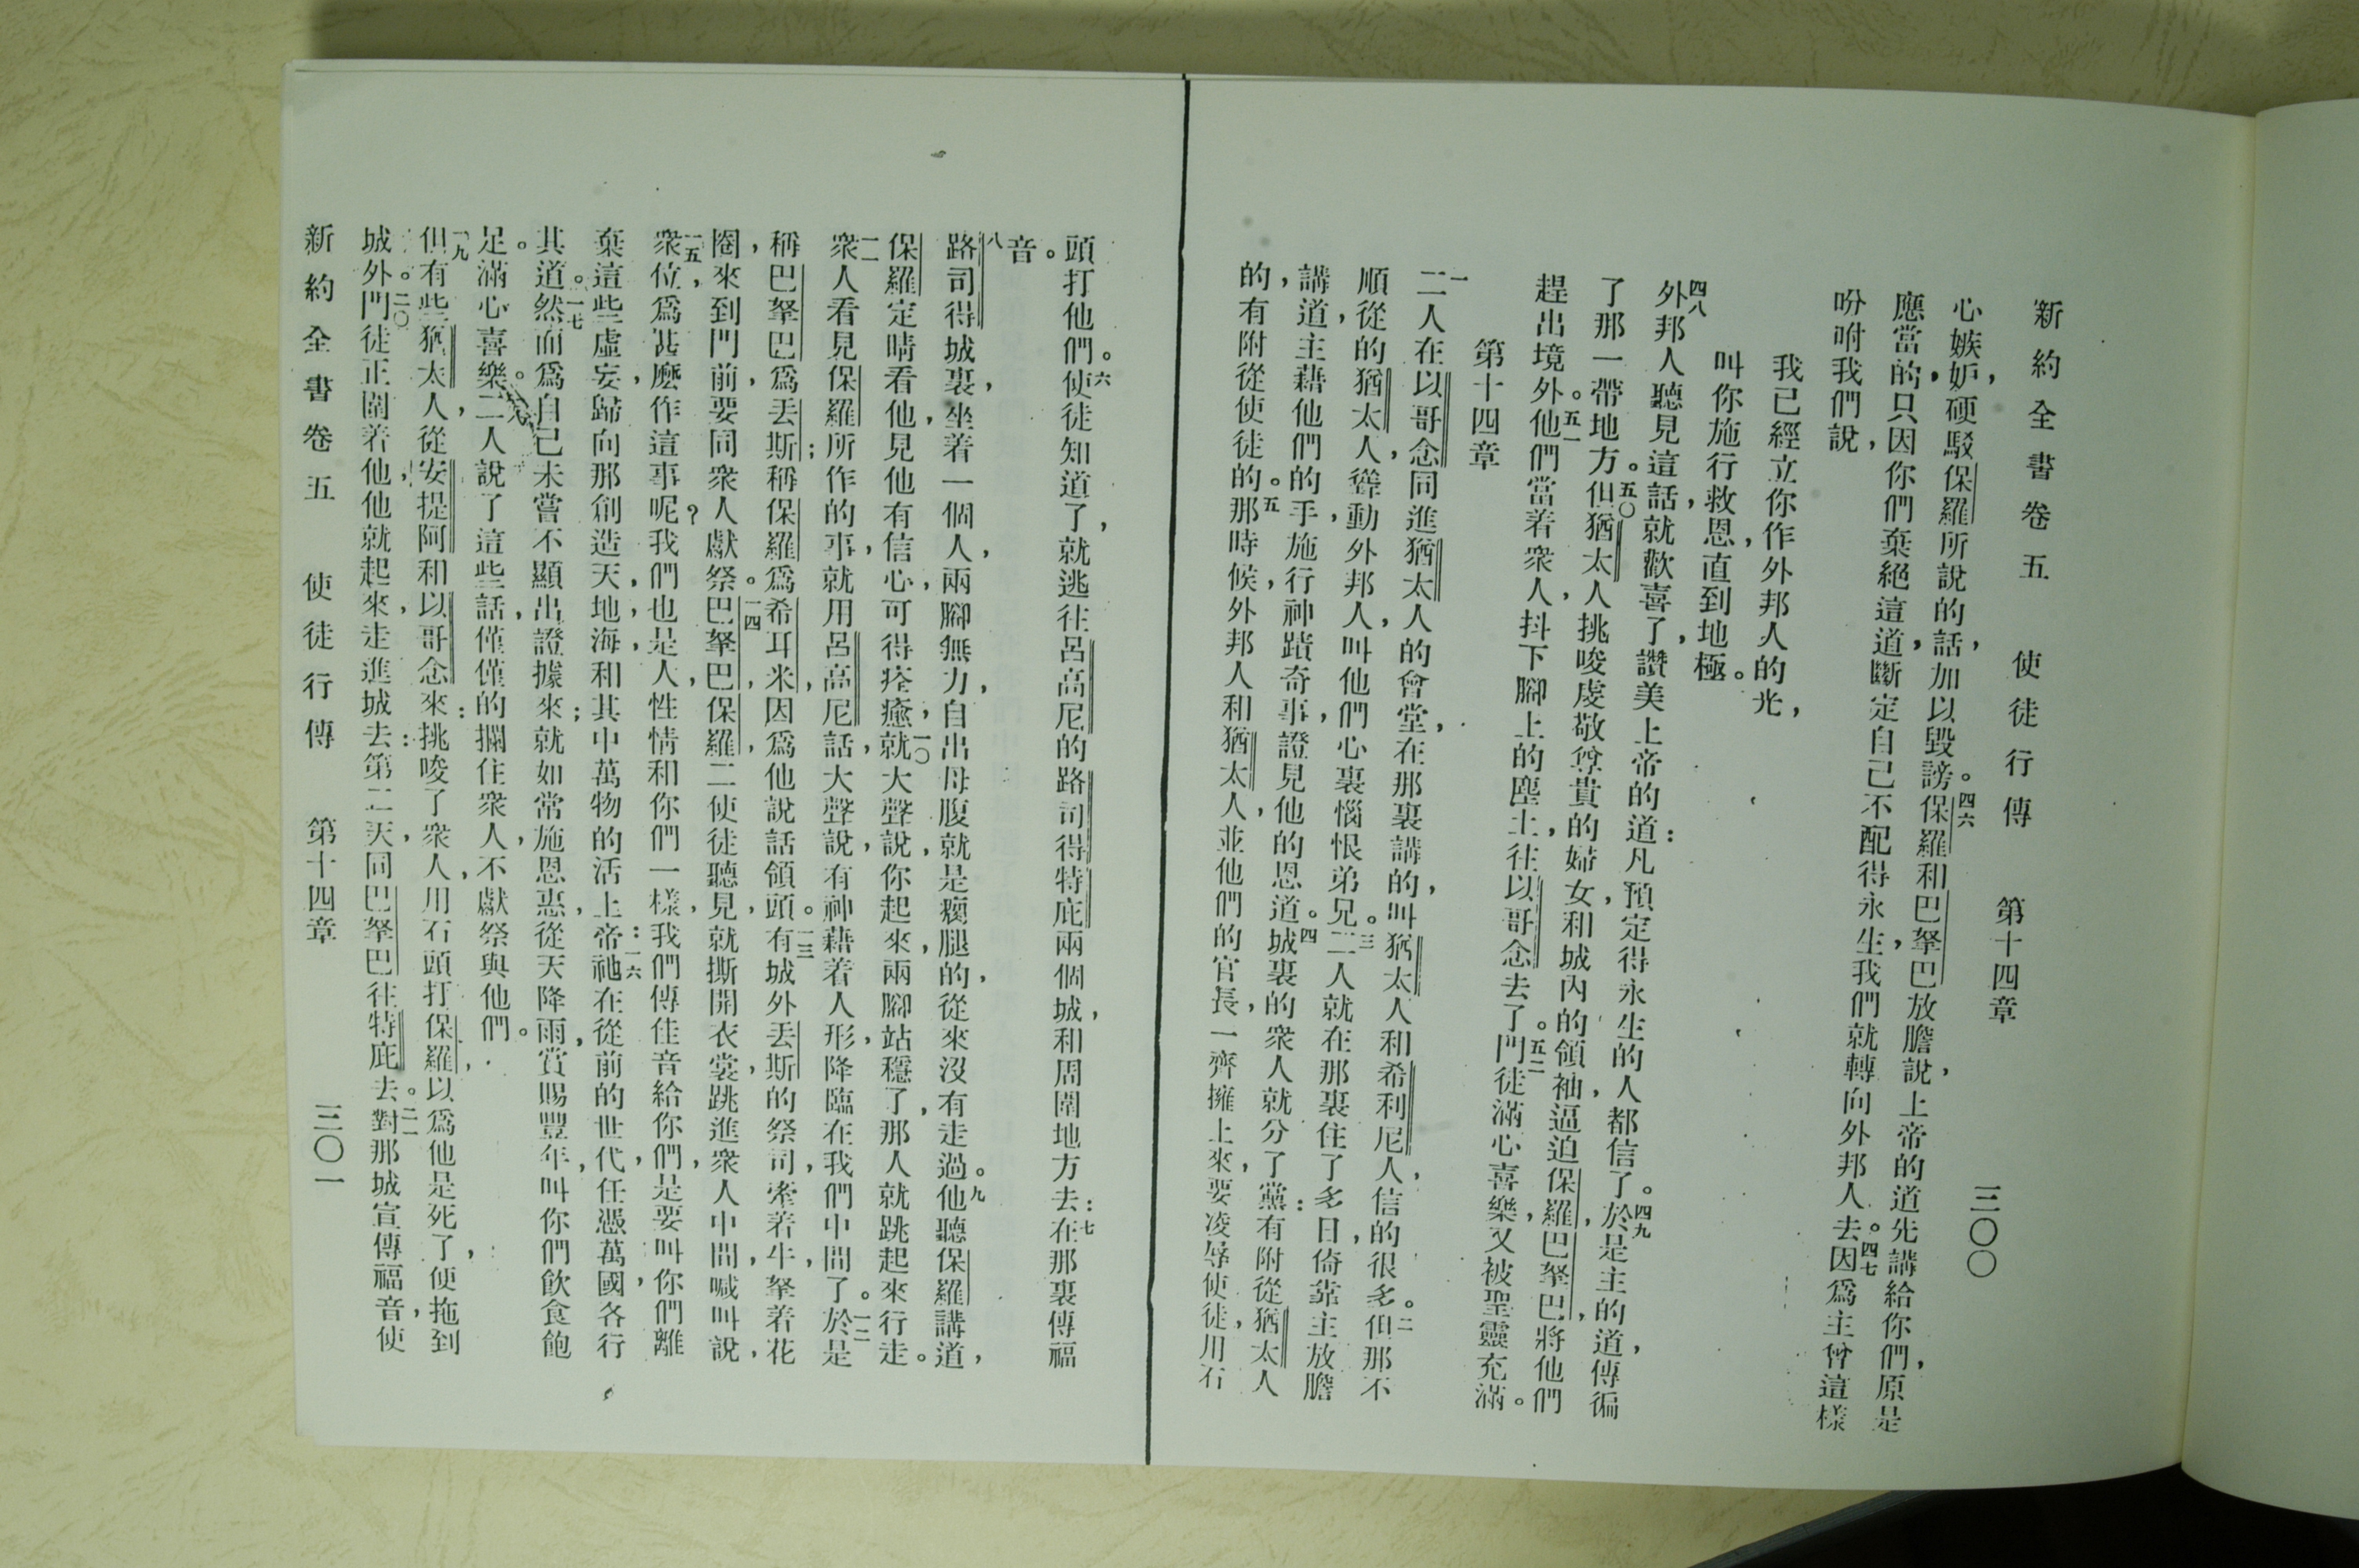 新約全書卷五 使徒行傳 第十四章 三〇〇
心嫉妒，硬駁保羅所說的話，加以毀謗。四六保羅和巴拏巴放膽說，上帝的道先講給你們，原是
應當的，只因你們棄絕這道，斷定自己不配得永生，我們就轉向外邦人去。四七因爲主曾這樣
吩咐我們說，
我已經立你作外邦人的光，
叫你施行救恩，直到地極。
四八外邦人聽見這話，就歡喜了，讚美上帝的道：凡預定得永生的人都信了。四九於是主的道，傳徧
了那一帶地方。五〇但猶太人，挑唆虔敬尊貴的婦女，和城內的領袖，逼迫保羅，巴拏巴，將他們
趕出境外。五一他們當着衆人，抖下腳上的塵土，往以哥念去了。五二門徒滿心喜樂，又被聖靈充滿。
第十四章
一二人在以哥念同進猶太人的會堂，在那裏講的，叫猶太人和希利尼人，信的很多。二但那不
順從的猶太人，聳動外邦人，叫他們心裏惱恨弟兄。三二人就在那裏住了多日，倚靠主放膽
講道，主藉他們的手，施行神蹟奇事，證見他的恩道。四城裏的衆人就分了黨：有附從猶太人
的，有附從使徒的。五那時候，外邦人和猶太人，並他們的官長，一齊擁上來，要凌辱使徒，用石
頭打他們。六使徒知道了，就逃往呂高尼的路司得特庇兩個城，和周圍地方去：七在那裏傳福
音。
八路司得城裏，坐着一個人，兩腳無力，自出母腹就是瘸腿的，從來沒有走過。九他聽保羅講道，
保羅定睛看他，見他有信心，可得痊癒，一〇就大聲說，你起來，兩腳站穩了，那人就跳起來行走。
一一衆人看見保羅所作的事，就用呂高尼話，大聲說，有神藉着人形，降臨在我們中間了。一二於是
稱巴拏巴爲丟斯；稱保羅爲希耳米，因爲他說話領頭。一三有城外丟斯的祭司，牽着牛，拏着花
圈，來到門前，要同衆人獻祭。一四巴拏巴，保羅，二使徒聽見，就撕開衣裳，跳進衆人中間，喊叫說，
一五衆位，爲甚麼作這事呢？我們也是人，性情和你們一樣，我們傳佳音給你們，是要叫你們離
棄這些虛妄，歸向那創造天，地，海，和其中萬物的活上帝：一六祂在從前的世代，任憑萬國，各行
其道。一七然而爲自己未嘗不顯出證據來；就如常施恩惠，從天降雨，賞賜豐年，叫你們飲食飽
足。滿心喜樂。一八二人說了這些話，僅僅的攔住衆人，不獻祭與他們。
一九但有些猶太人，從安提阿和以哥念來：挑唆了衆人，用石頭打保羅，以爲他是死了，便拖到
城外。二〇門徒正圍着他，他就起來，走進城去：第二天，同巴拏巴往特庇去。二一對那城宣傳福音，使
新約全書卷五 使徒行傳 第十四章 三〇一